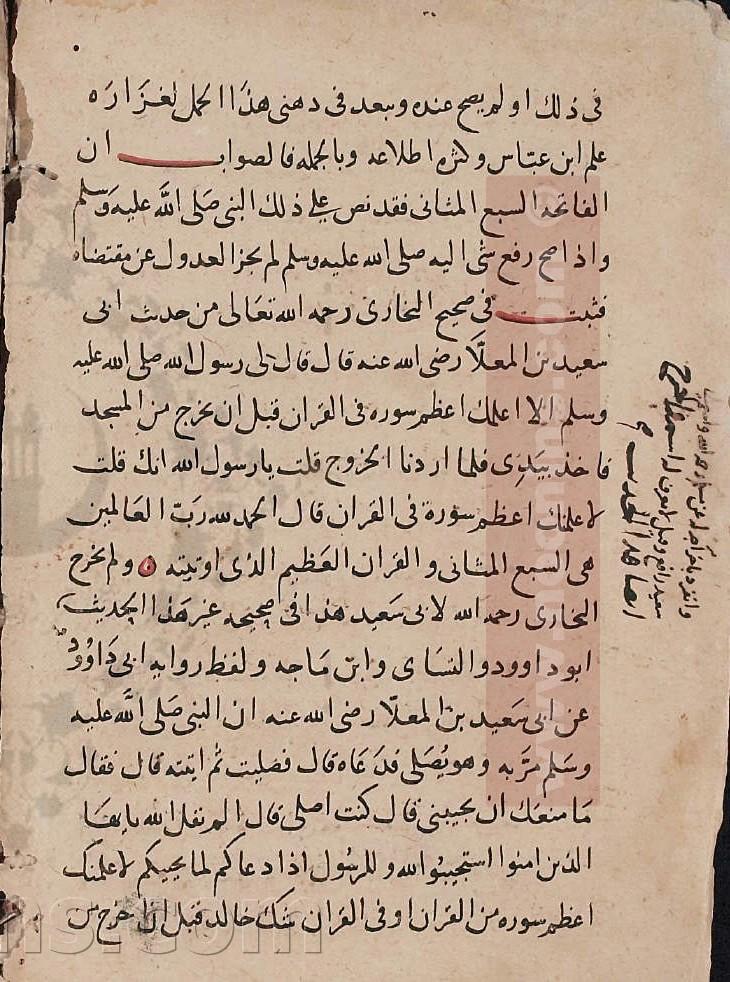 فى ذلك او لم يصح عنده وبعد فى ذهنى هذا الحمل لغزاره
علم ابن عباس وكثره اطلاعه وبالجمله فالصواب ان
الفاتحه السبع المثانى فقد نص على ذلك النبى صَلى الله عليه وَسلم
واذا صح رفع شى اليه صلى الله عليه وسلم لم يجز العدول عن مقتضاه
فثبت فى صحيح البخارى رحمه الله تعَالى من حدث ابى
سعيد بن المعلَّا رضى الله عنه قال قال لى رسول الله صلى الله عليه
وسلم الا اعلمك اعظم سوره فى القران قبل ان نخرج من المسجد
فاخذ بيَدِى فلما اردنا الخروج قلت يا رسول الله انك قلت
لاعلمنك اعظم سورة فى القران قال الحمد لله ربّ العَالمين
هى السبع المثانى والقران العَظيم الذى اوتيته ولم يخرج
البخارى رحمه الله لابى سَعيد هذا فى صحيحه غير هَذا الحديث
ابو داوود والنسَاى وابن مَاجه ولفظ روايه ابى دَاوُود
عن ابى سَعيد بن المعلّا رضى الله عنه ان النبى صَلى الله عليه
وسَلم مرَّ به وهو يُصَلى فدَعَاه قال فصَليت ثم اتيته قال فقال
مَا منعَك ان تجيبنى قال كنت اصلى قال الم يقل الله يا ايهَا
الذين امنوا استجيبُوا الله وللرسُول اذا دعاكم لما يحييكم لاعلمنك
اعظم سوره من القران او فى القران شك خالد قبل ان اخرج من
وانفرد باخراجه عن مسلم رحمه الله
سعيد رافع وقيل لا يعرف له اسم
ns.com